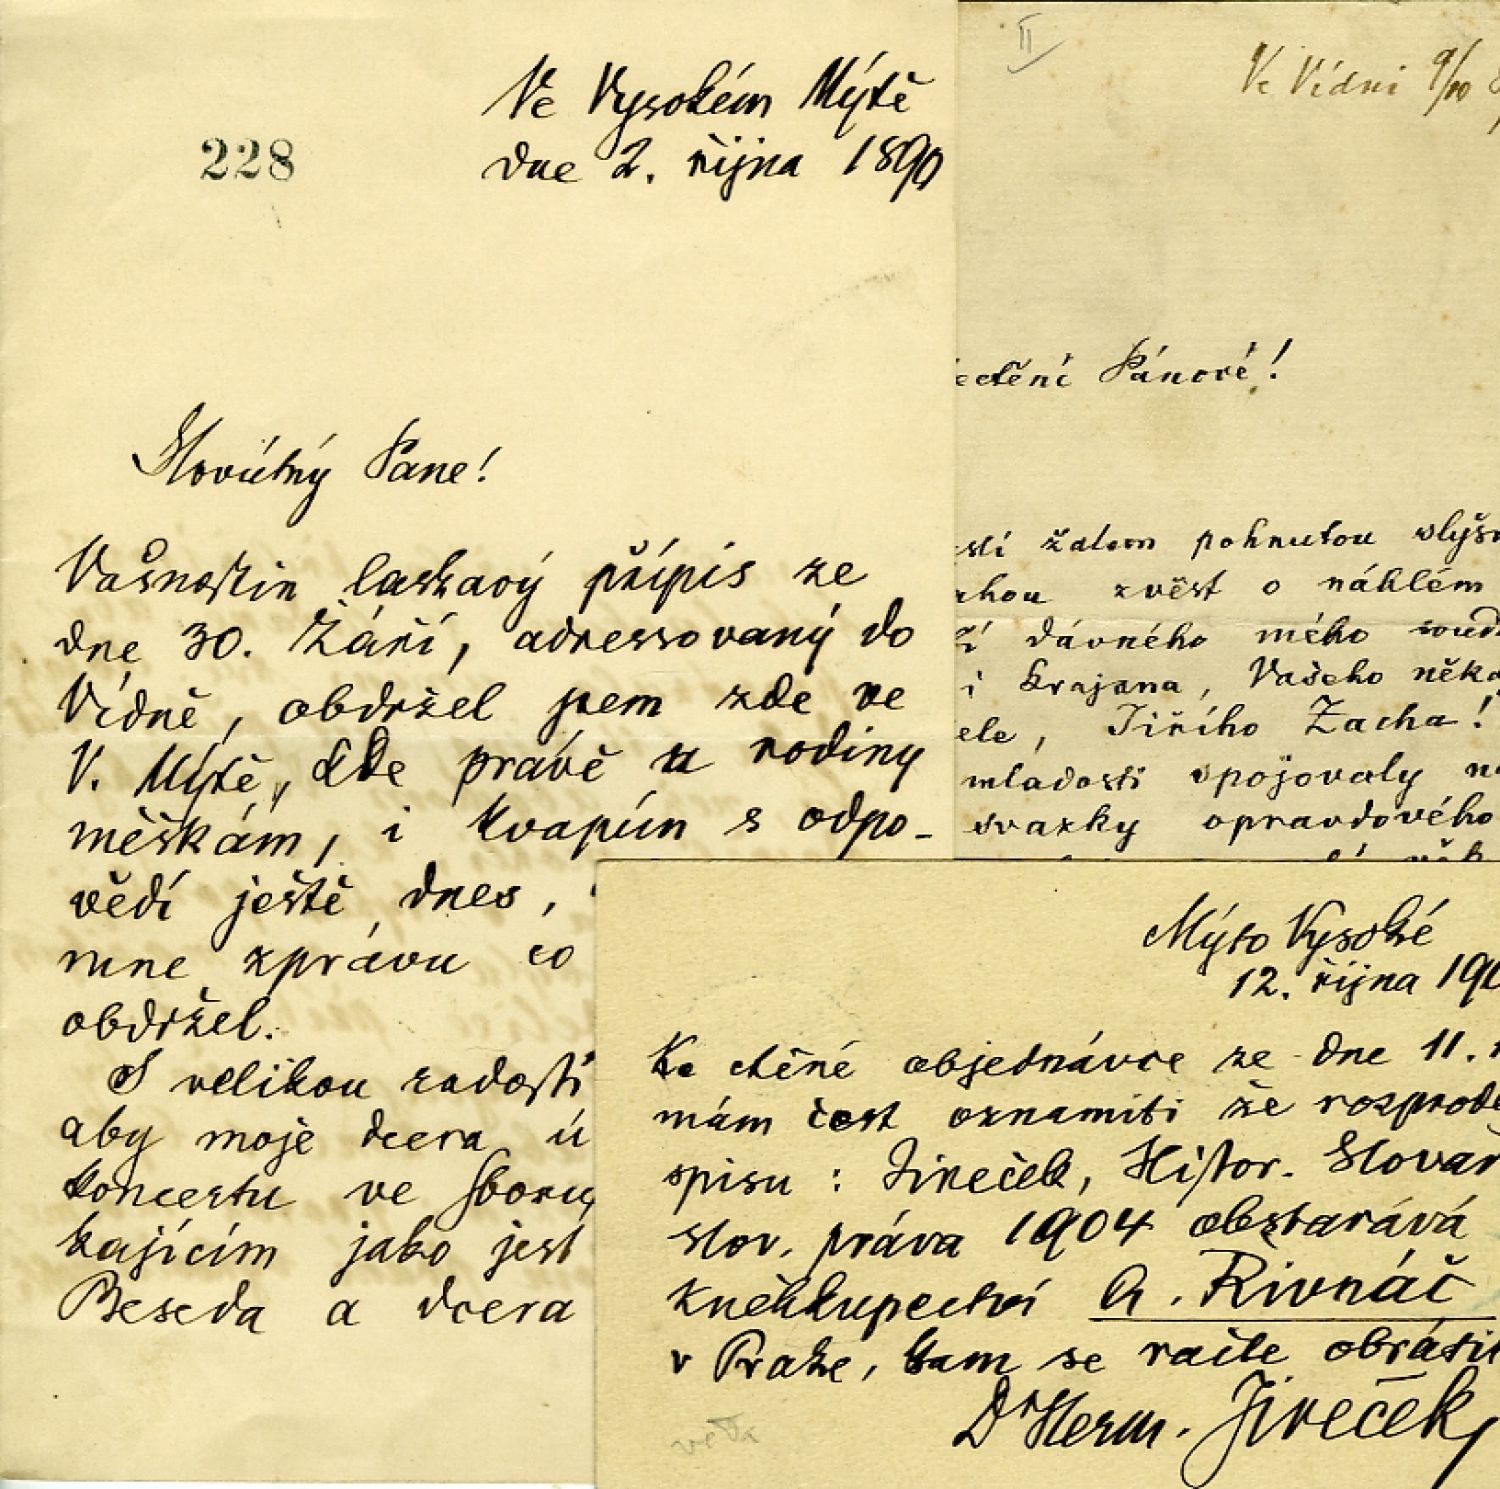 228
Ve Vysokém Mýtě
dne 2. října 1890
Slovútný Pane!
Vašnostin laskavý přípis ze
dne 30. Září, adressovaný do
Vídně, obdržel jsem zde ve
V. Mýtě, kde právě u rodiny
měškám, i kvapím s odpo-
vědí ještě dnes,
mne zprávu co
obdržel.
S velikou radostí
aby moje dcera ú
koncertu ve sboru
kajícím jako jest
Beseda a dcera
II
Ve Vídni 9/10
ctění Pánové!
stí žalem pohnutou slyše
uhou zvěst o náhlém
dávného mého soudr
i krajana, Vašeho něka
ele, Jiřího Zacha!
mladosti spojovaly n
svazky opravdového
věk
Mýto Vysoké
12. října 190
Ke ctěné objednávce ze dne 11. ř
mám čest oznamiti že rozprode
spisu : Jireček, Histor. Slovar
slov. práva 1904 obstarává
kněhkupectví A. Rivnáč
v Praze, tam se račte obrátit
Dr Herm. Jireček,
veta